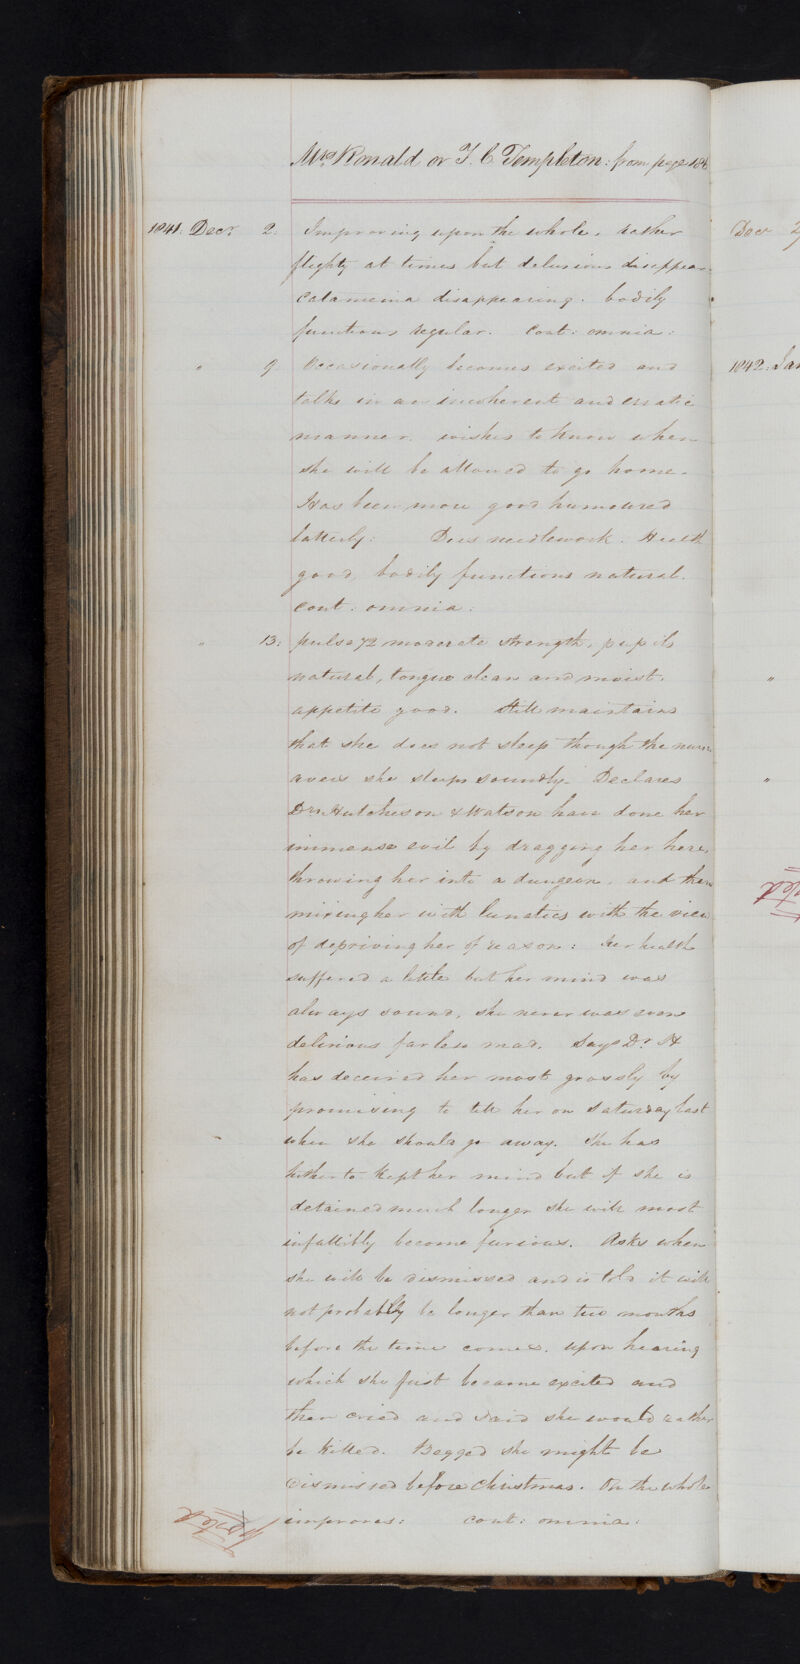 Mrs Ronald or T. C. Templeton: from page 186
1841. Decr. 2. Improving upon the whole, rather
flighty at times but delusions disappear
catamenia disappearing. bodily
functions regular. Cont: omnia:
" 9 Occasionally becomes excited and
talks in an incoherent and erratic
manner. wishes to know when
she will be allowed to go home.
Has been more good humoured
latterly: Does needlework. Health
good, bodily functions natural.
Cont: omnia:
" 13: pulse 72 moderate strength, pupils
natural, tongue clean and moist.
appetite good. Still maintains
that she does not sleep though the nurse
avers she sleeps soundly. Declares
Drs. Hutcheson & Watson have done her
immense evil by dragging her here,
throwing her into a dungeon, and then
mixing her with lunatics with the view
of depriving her of reason: her health
suffered a little but her mind was
always sound, she never was even
delirious far less mad. Says Dr. H
has deceived her most grossly by
promising to tell her on Saturday last
when she should go away. She has
hitherto kept her mind but if she is
detained much longer she will most
infallibly become furious. Asks when
she will be dismissed and is told it will
not probably be longer than two months
before the time comes. upon hearing
which she first became excited and
then cried and said she would rather
be killed. Begged she might be
dismissed before Christmas. On the whole
improves: Cont: omnia:
Decr
1842: Jan
"
"